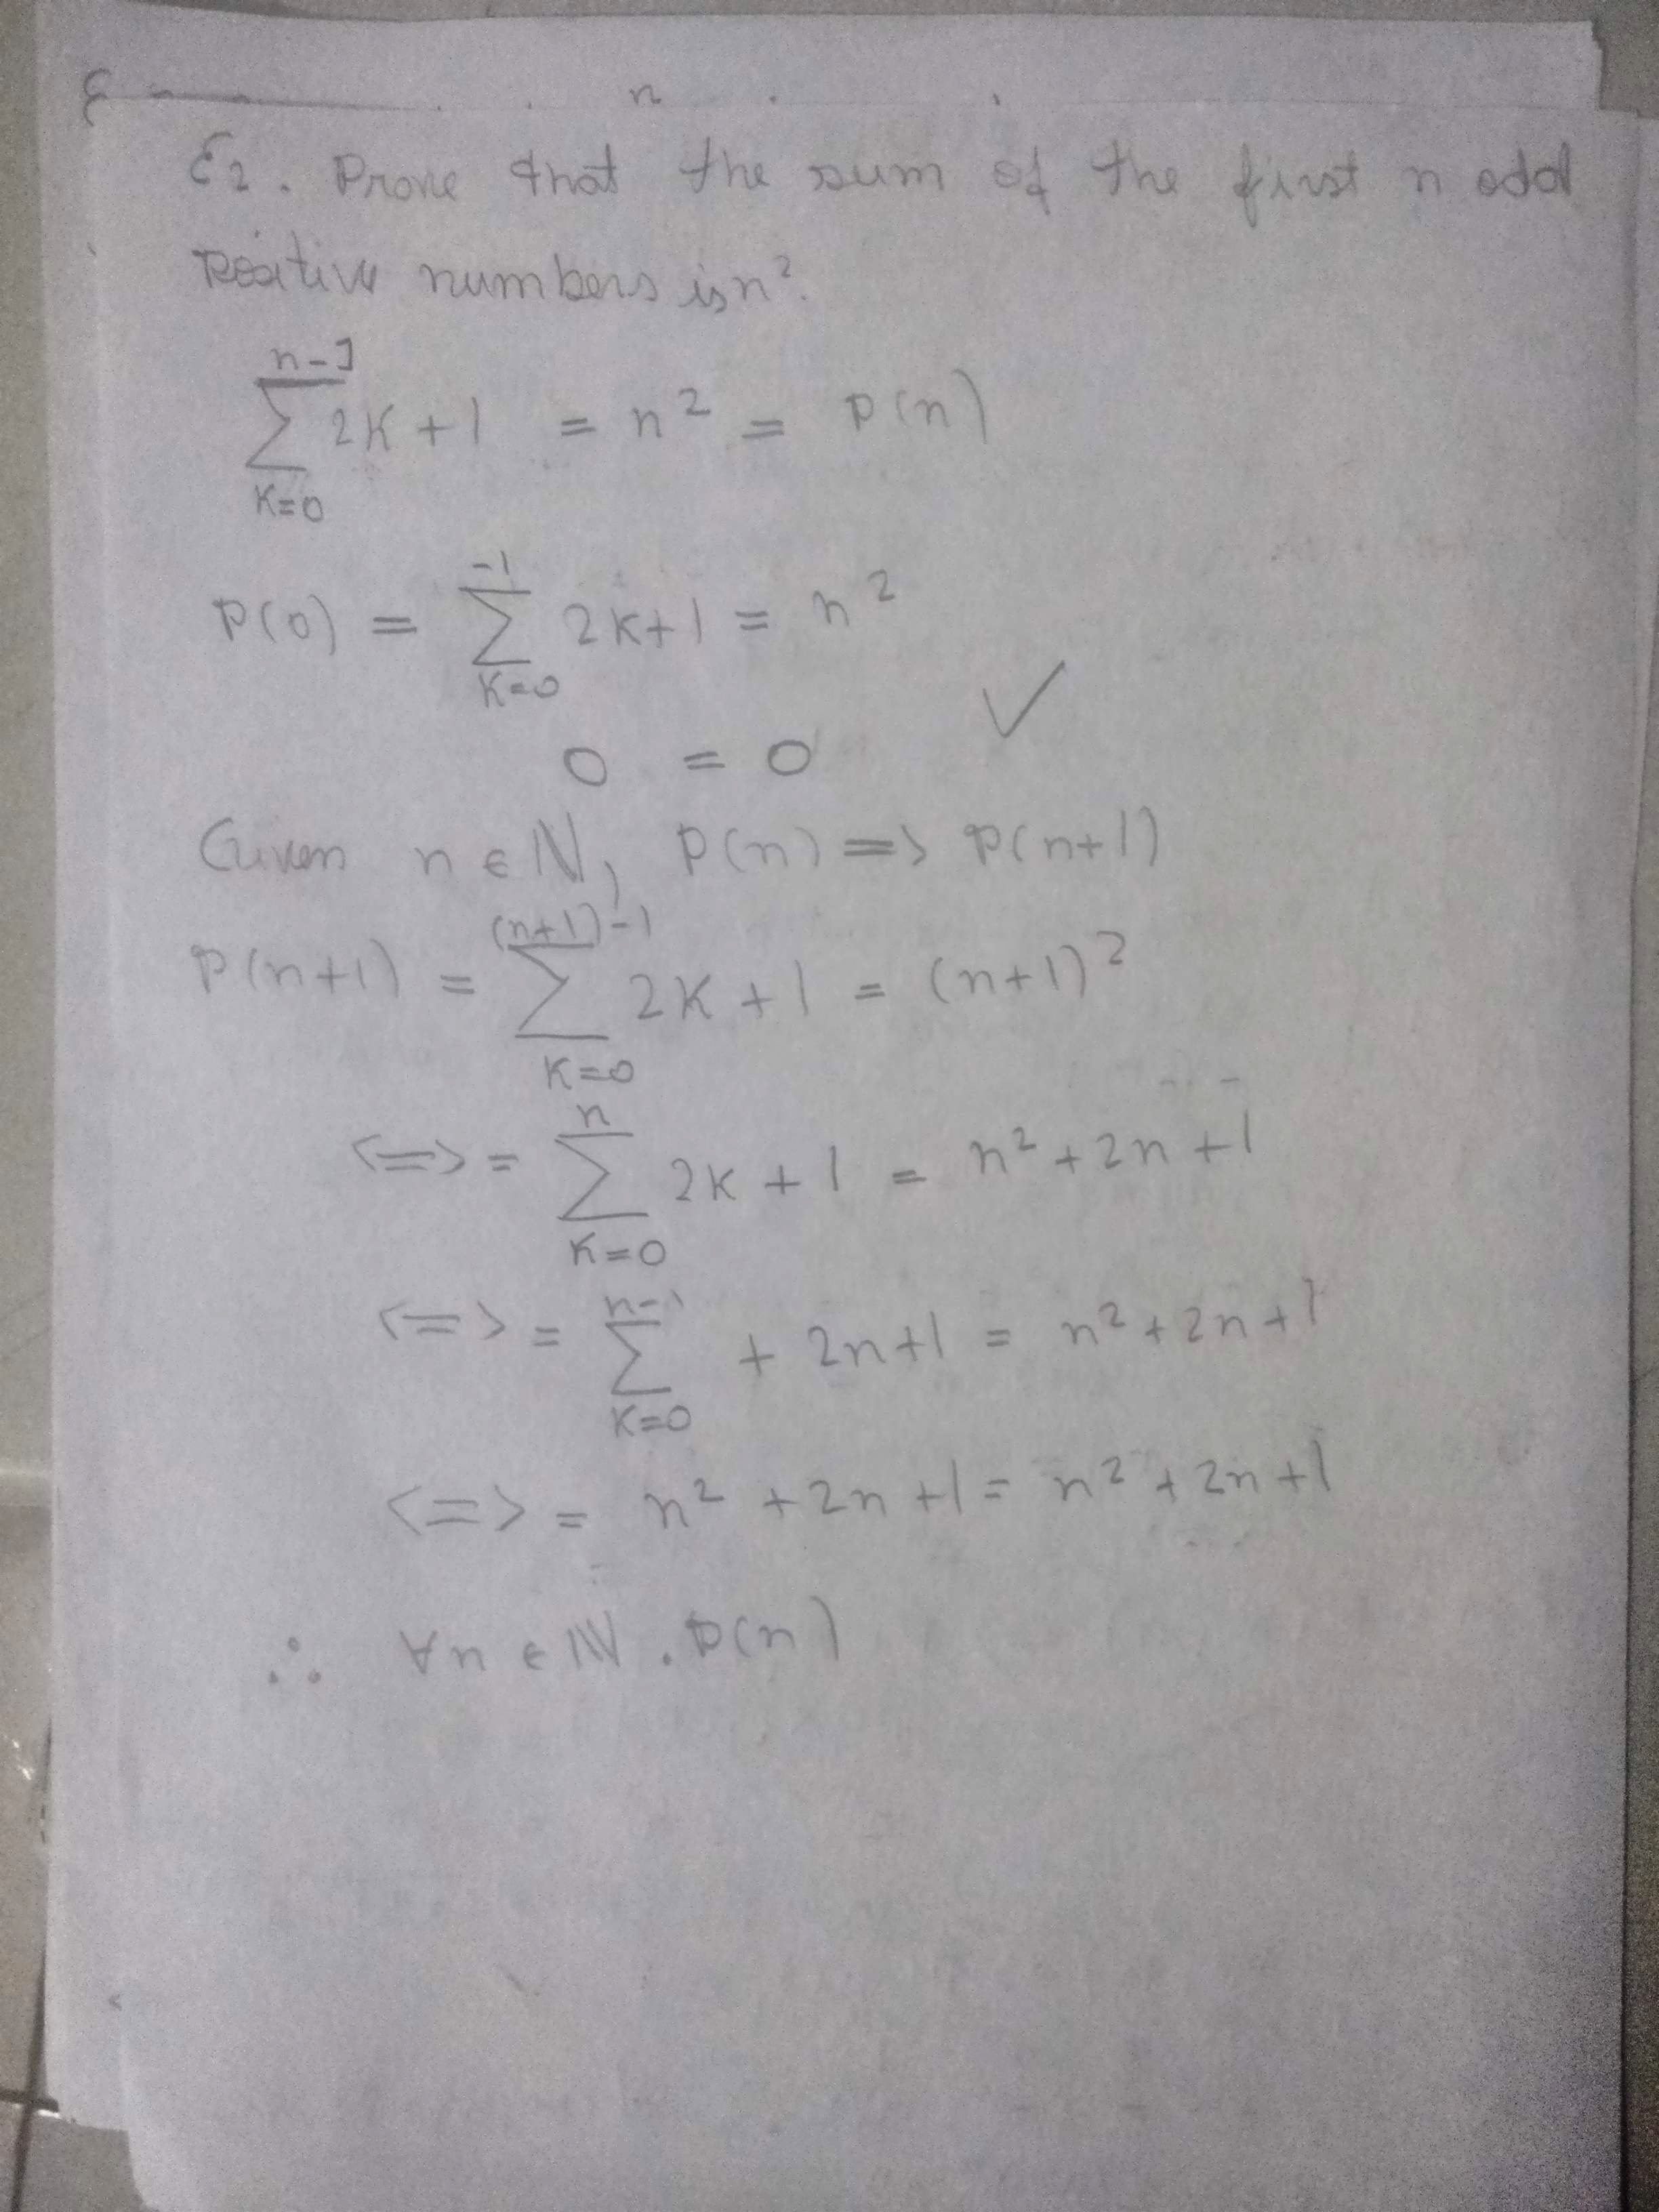 n
E2. Prove that the sum of the first n odd
positive numbers is n².
n-1
∑ 2K+1 = n² = P(n)
K=0
-1
P(0) = ∑ 2K+1 = n²
K=0
0 = 0 ✓
Given n ∈ ℕ, P(n) => P(n+1)
(n+1)-1
P(n+1) = ∑ 2K+1 = (n+1)²
K=0
n
<=> = ∑ 2K+1 = n²+2n+1
K=0
n-1
<=> = ∑ + 2n+1 = n²+2n+1
K=0
<=> = n²+2n+1 = n²+2n+1
∴ ∀n ∈ ℕ. P(n)